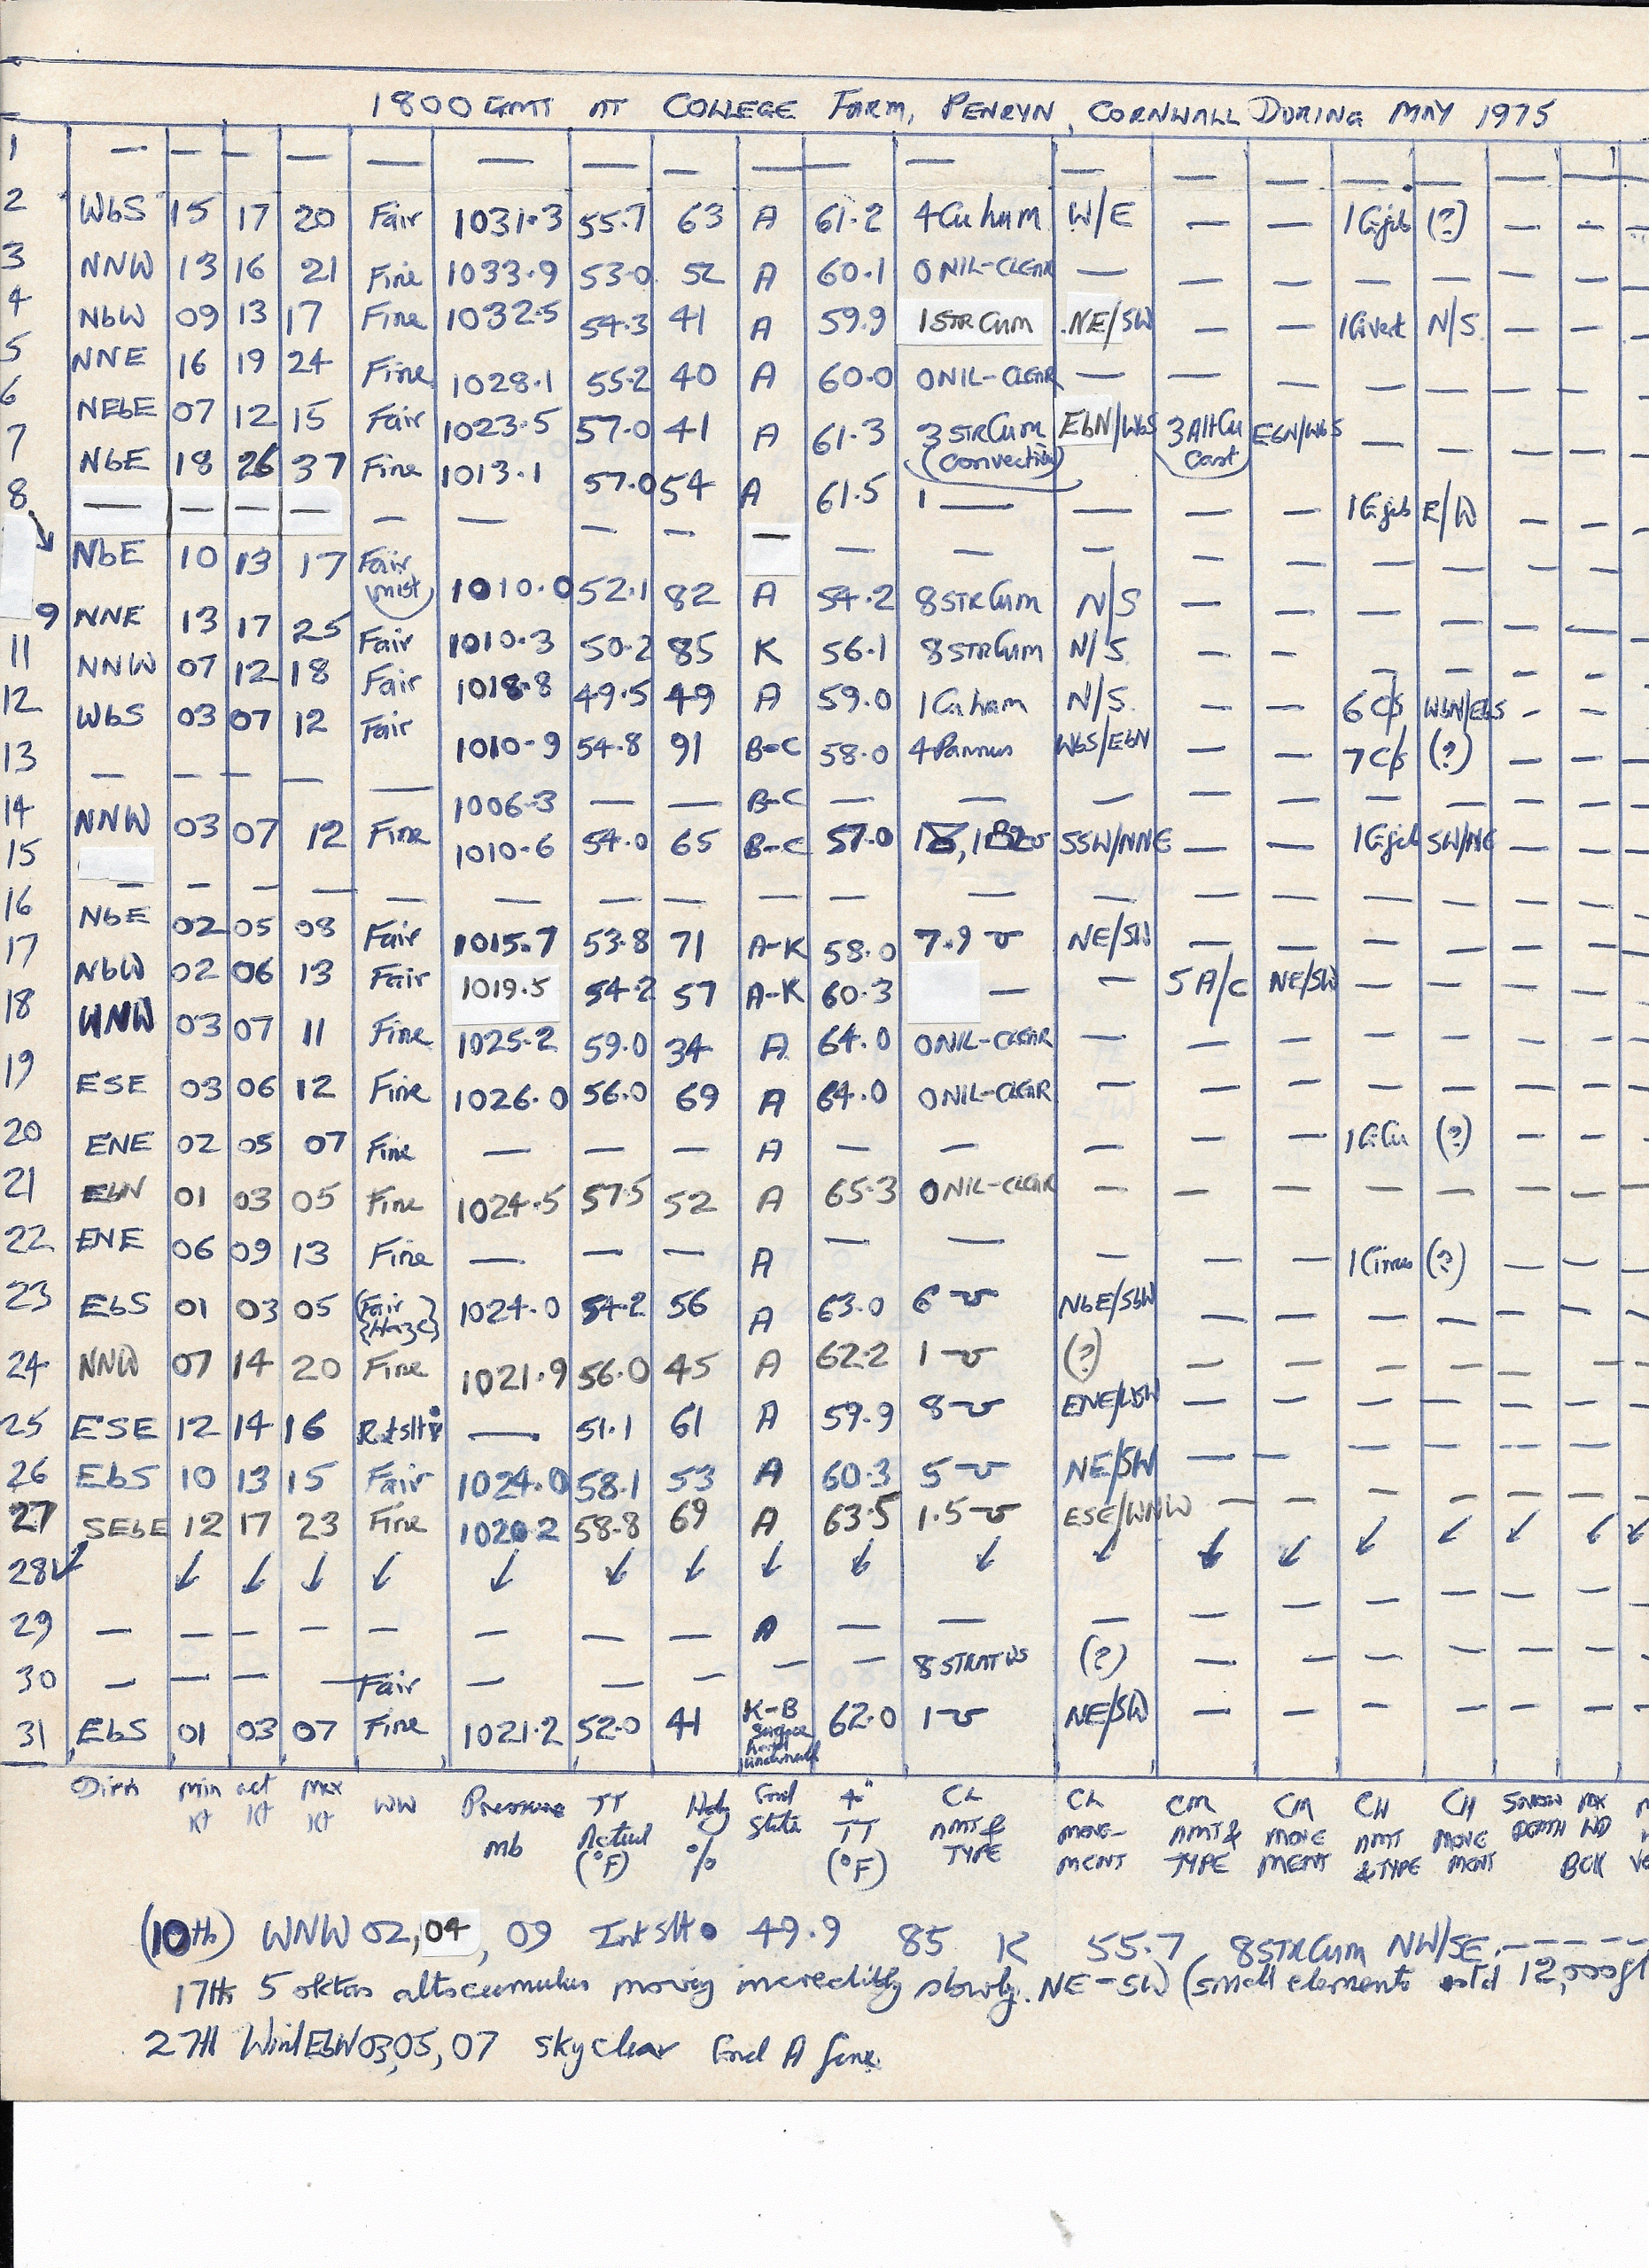 1800 GMT AT COLLEGE FARM, PENRYN, CORNWALL DURING MAY 1975
1 — — — — — — — — — — — — — — — — — —
2 WbS 15 17 20 Fair 1031.3 55.7 63 A 61.2 4Cu hum W/E — — (?) — — —
3 NNW 13 16 21 Fine 1033.9 53.0 52 A 60.1 0 NIL-CLEAR — — — — — — — —
4 NbW 09 13 17 Fine 1032.5 54.3 41 A 59.9 1 STRCum NE/SW — — N/S — — —
5 NNE 16 19 24 Fine 1028.1 55.2 40 A 60.0 0 NIL-CLEAR — — — — — — — —
6 NEbE 07 12 15 Fair 1023.5 57.0 41 A 61.3 3 STRCum (Convection) EbN/WbS 3 AltCu Cast EbN/WbS — — — — —
7 NbE 18 26 37 Fine 1013.1 57.0 54 A 61.5 1 — — — — E/W — — —
8 — — — — — — — — — — — — — — — — — —
NbE 10 13 17 Fair mist 1010.0 52.1 82 A 54.2 8 STRCum N/S — — — — — — —
9 NNE 13 17 25 Fair 1010.3 50.2 85 K 56.1 8 STRCum N/S — — — — — — —
11 NNW 07 12 18 Fair 1018.8 49.5 49 A 59.0 1 Cu hum N/S — — 6 CS WbN/EbS — —
12 WbS 03 07 12 Fair 1010.9 54.8 91 B-C 58.0 4 Pannus WbS/EbN — — 7 CS (?) — — —
13 — — — — — 1006.3 — — B-C — — — — — — — — — —
14 NNW 03 07 12 Fine 1010.6 54.0 65 B-C 57.0 SSW/NNE — — SW/NE — — —
15 — — — — — — — — — — — — — — — — — —
16 NbE 02 05 08 Fair 1015.7 53.8 71 A-K 58.0 7.9 NE/SW — — — — — — —
17 NbW 02 06 13 Fair 1019.5 54.2 57 A-K 60.3 — — 5 A/C NE/SW — — — — —
18 WNW 03 07 11 Fine 1025.2 59.0 34 A 64.0 0 NIL-CLEAR — — — — — — — —
19 ESE 03 06 12 Fine 1026.0 56.0 69 A 64.0 0 NIL-CLEAR — — — — — — — —
20 ENE 02 05 07 Fine — — — A — — — — — 1 CiCu (?) — — —
21 EbN 01 03 05 Fine 1024.5 57.5 52 A 65.3 0 NIL-CLEAR — — — — — — — —
22 ENE 06 09 13 Fine — — — A — — — — — 1 Cirrus (?) — — —
23 EbS 01 03 05 (Fair {Haze} 1024.0 54.2 56 A 63.0 6 NbE/SbW — — — — — — —
24 NNW 07 14 20 Fine 1021.9 56.0 45 A 62.2 1 (?) — — — — — — —
25 ESE 12 14 16 — 51.1 61 A 59.9 8 ENE/WSW — — — — — — —
26 EbS 10 13 15 Fair 1024.0 58.1 53 A 60.3 5 NE/SW — — — — — — —
27 SEbE 12 17 23 Fine 1020.2 58.8 69 A 63.5 1.5 ESE/WNW — — — — — — —
28 ↙ ↙ ↙ ↙ ↙ ↙ ↙ ↙ ↙ ↙ ↙ ↙ ↙ ↙ ↙ ↙ ↙ ↙ ↙
29 — — — — — — — — A — — — — — — — — — —
30 — — — — Fair — — — — — 8 STRATUS (?) — — — — — — —
31 EbS 01 03 07 Fine 1021.2 52.0 41 K-B Surface 62.0 1 NE/SW — — — — — — —
Dirn min Kt act Kt max Kt WW Pressure mb TT Actual (°F) Hdy % Grnd State 4" TT (°F) CL AMT & TYPE CL MOVE-MENT CM AMT & TYPE CM MOVE MENT CH AMT & TYPE CH MOVE MENT SNOW DEPTH MX WD BCK
(10th) WNW 02, 04, 09 Int slt • 49.9 85 K 55.7 8 STRCum NW/SE — — — — —
17th 5 oktas altocumulus moving incredibly slowly. NE-SW (small elements estd 12,000ft
27th Wind EbN 03, 05, 07 sky clear Grnd A fine.